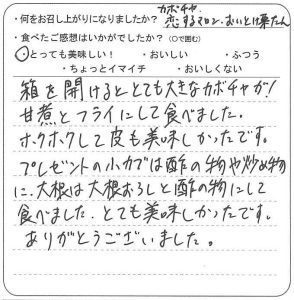 カボチャ
・何をお召し上がりになりましたか? 恋するマロン・おいとけ栗たん
・食べたご感想はいかがでしたか?(○で囲む)
・とっても美味しい! ・おいしい ・ふつう
・ちょっとイマイチ ・おいしくない
箱を開けるととても大きなカボチャが!
甘煮とフライにして食べました。
ホクホクして皮も美味しかったです。
プレゼントの小カブは酢の物や炒め物
に、大根は大根おろしと酢の物にして
食べました。とても美味しかったです。
ありがとうございました。